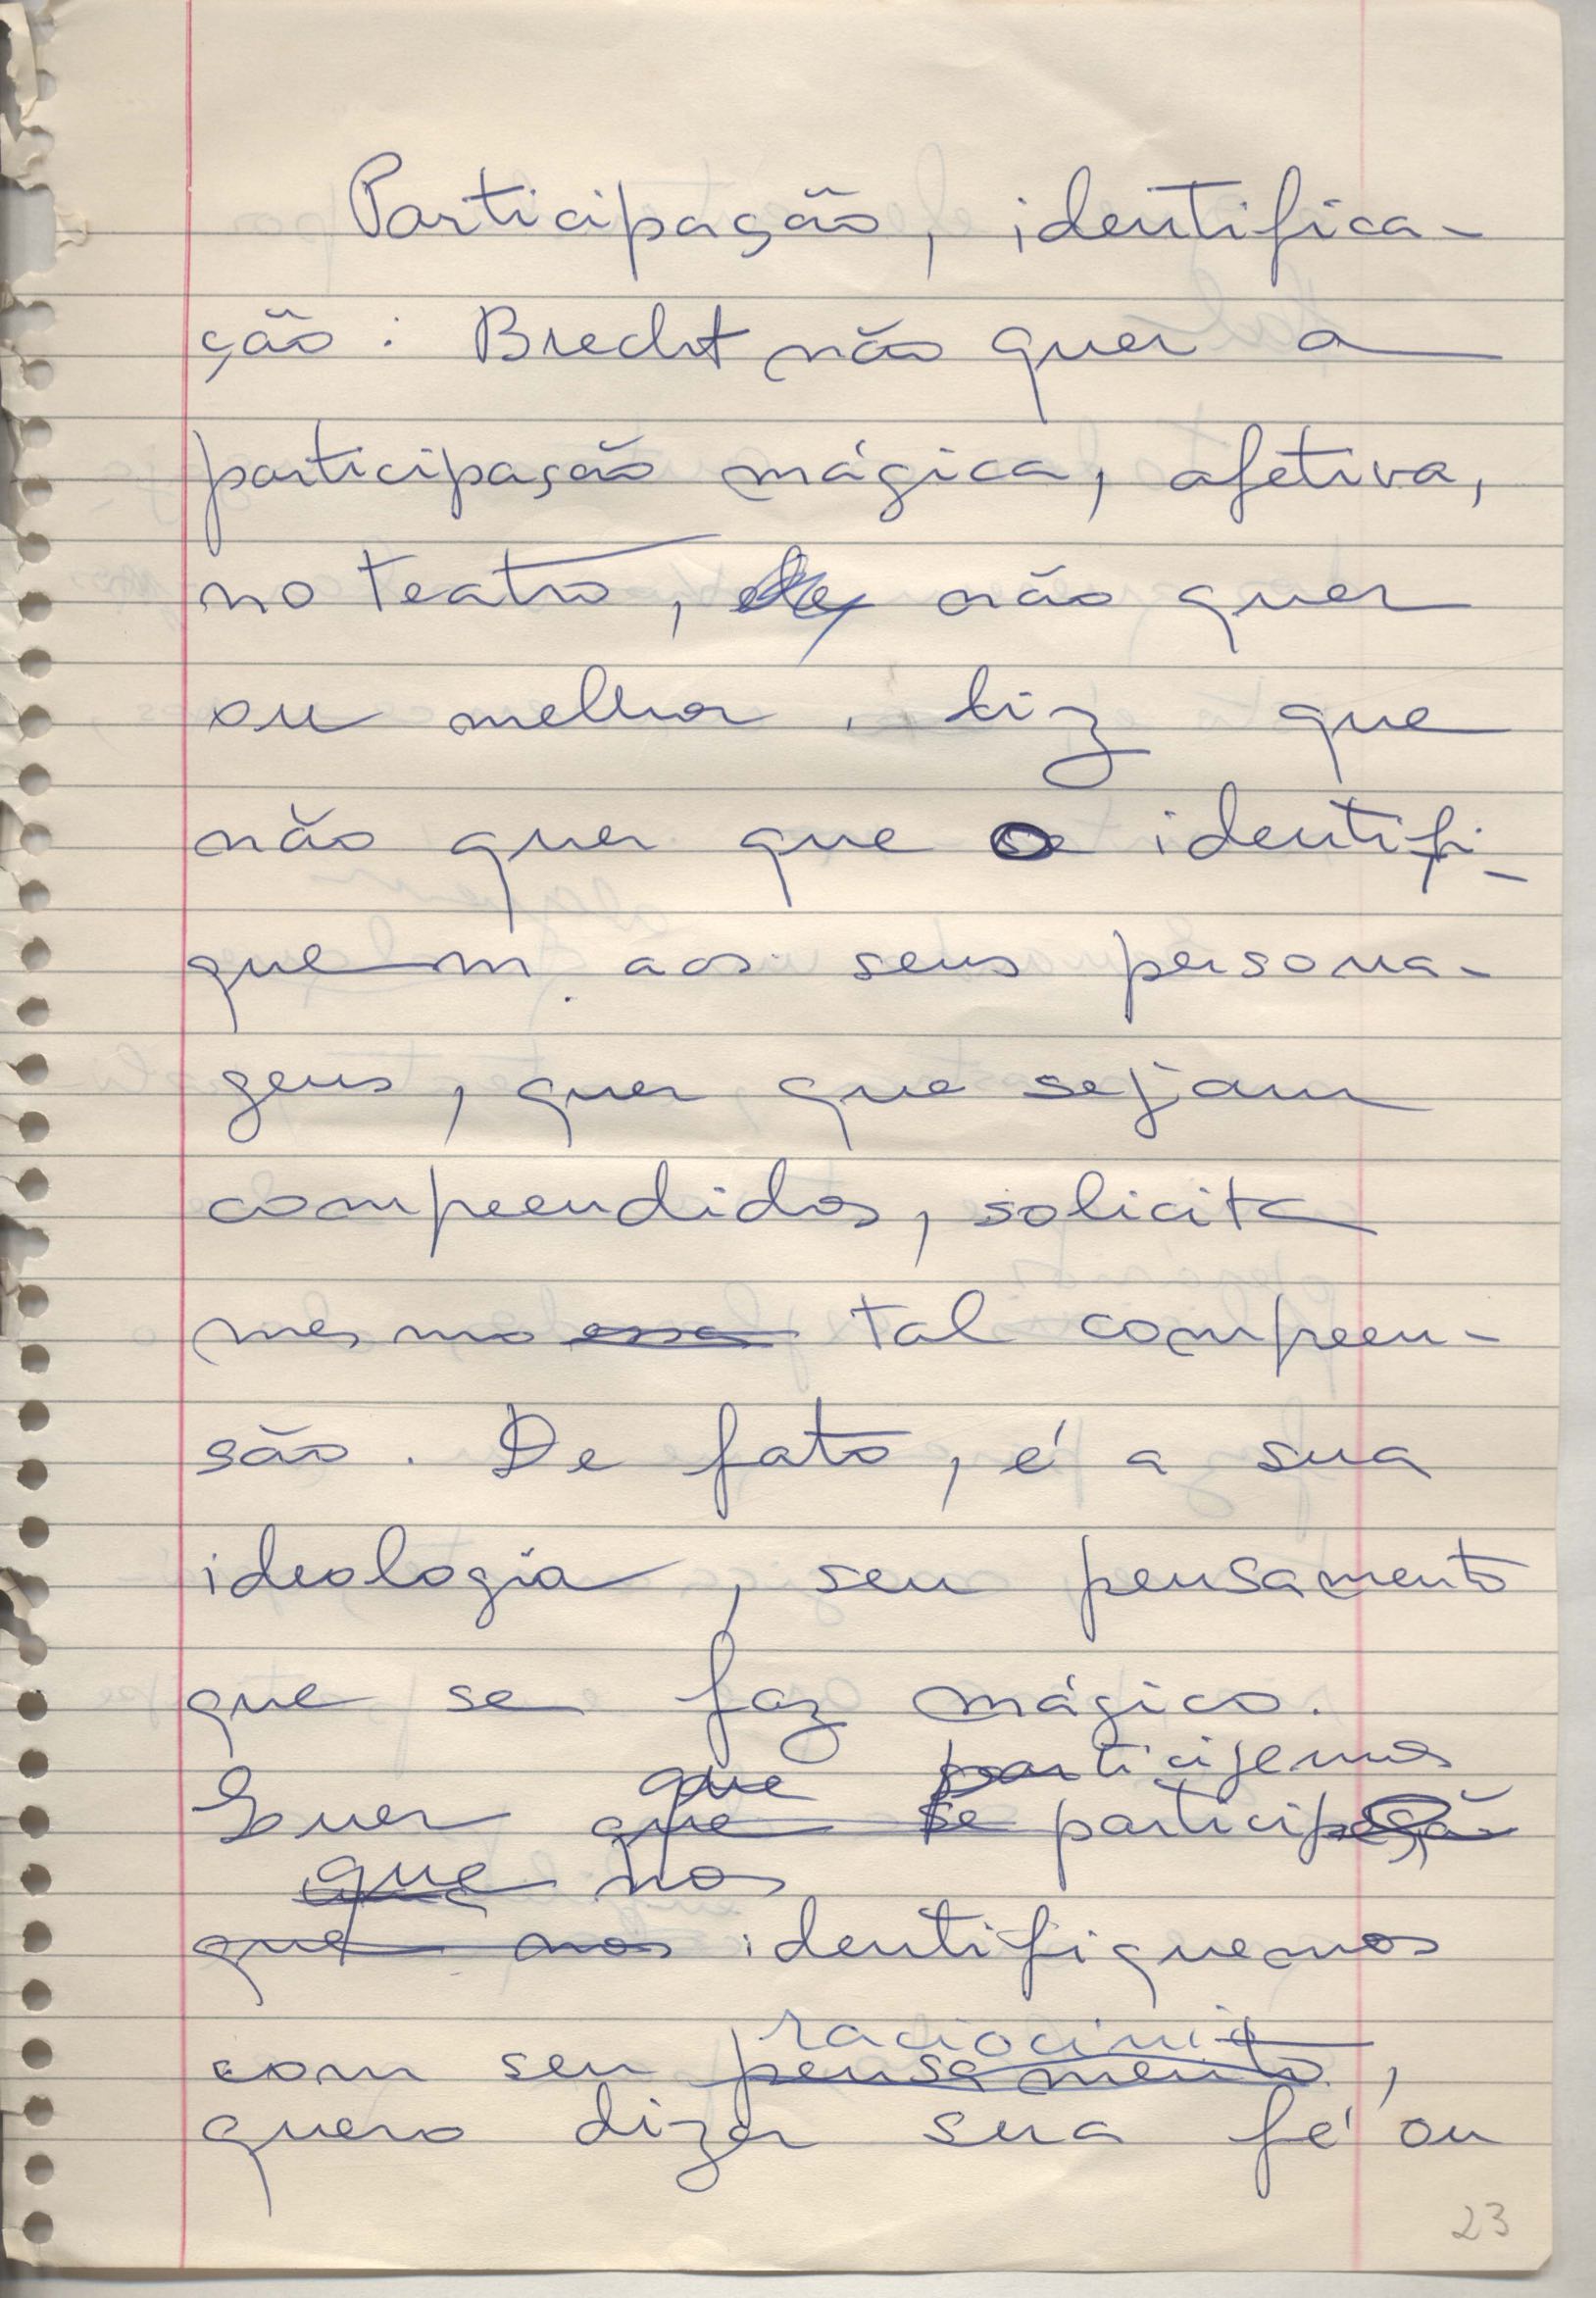 Participação, identifica-
ção : Brecht não quer a
participação mágica, afetiva,
no teatro, não quer
ou melhor, diz que
não quer que se identifi-
quem aos seus persona-
gens, quer que sejam
compreendidos, solicita
mesmo essa tal compreen-
são. De fato, é a sua
ideologia, seu pensamento
que se faz mágico.
que participemos
Quer que se participação
que nos
que nos identifiquemos
raciocinio
com seu pensamento,
quero dizer sua fé ou
23